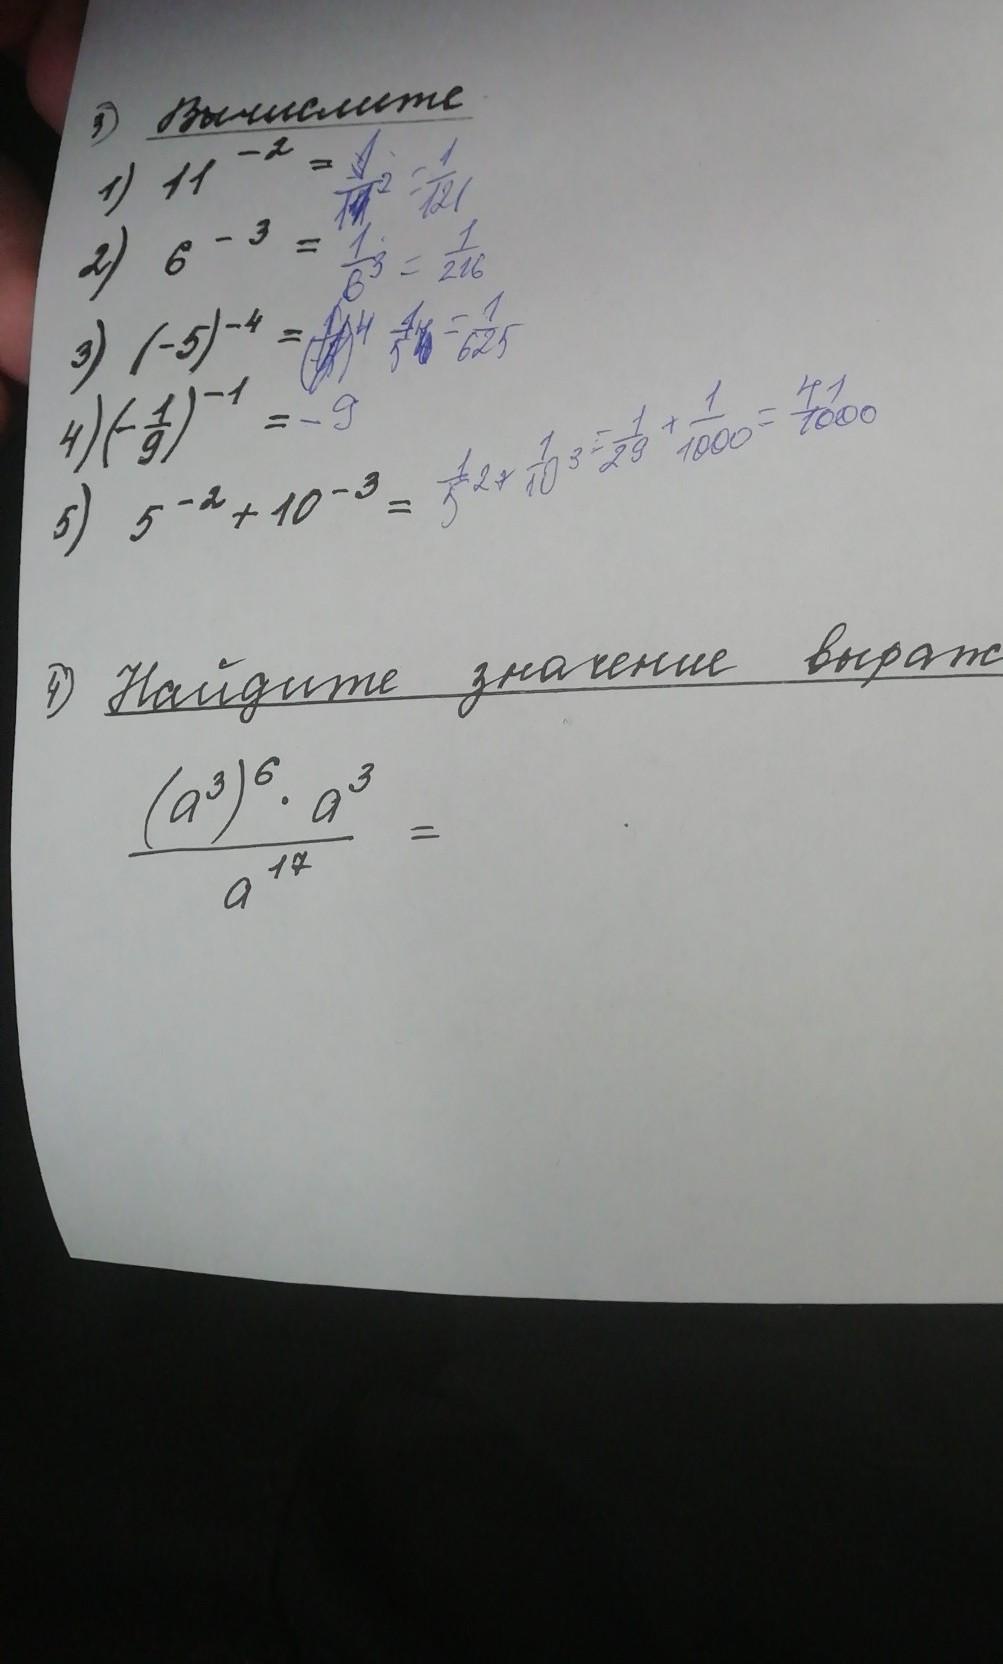 3) Вычислите
1) 11^{-2} = \frac{1}{11^2} = \frac{1}{121}
2) 6^{-3} = \frac{1}{6^3} = \frac{1}{216}
3) (-5)^{-4} = \frac{1}{5^4} = \frac{1}{625}
4) (-\frac{1}{9})^{-1} = -9
5) 5^{-2} + 10^{-3} = \frac{1}{5^2} + \frac{1}{10^3} = \frac{1}{29} + \frac{1}{1000} = \frac{41}{1000}
4) Найдите значение выраж
\frac{(a^3)^6 · a^3}{a^{17}} =